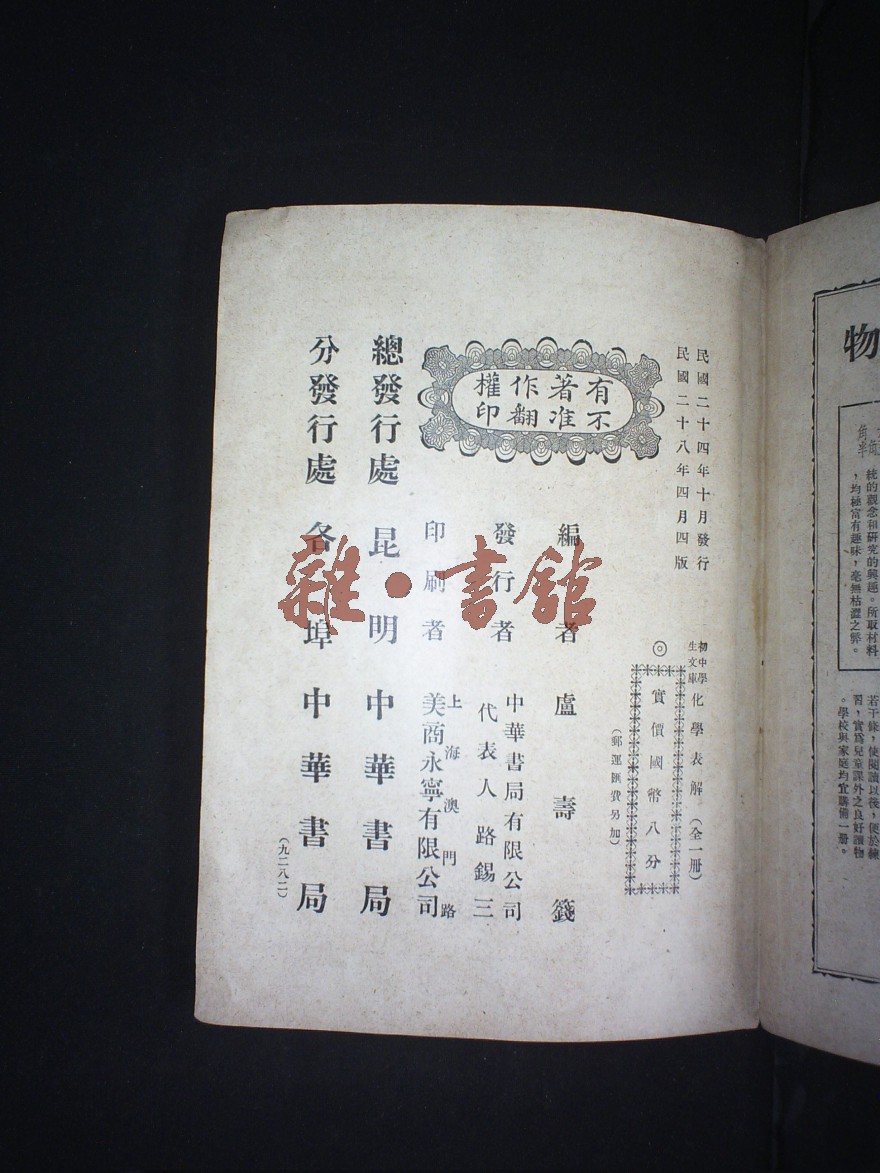 物
統的觀念和研究的興趣。所取材料
，均極富有趣味，毫無枯澀之弊。
若干條，使閱讀以後，便於練
習，實爲兒童課外之良好讀物
。學校與家庭均宜購備一册。
民國二十四年十月發行
民國二十八年四月四版
初中學
生文庫
化學表解（全一册）
◎
實價國幣八分
（郵運匯費另加）
有著作權
不准翻印
編者 盧壽籛
發行者
中華書局有限公司
代表人路錫三
印刷者
上海澳門路
美商永寧有限公司
總發行處 昆明中華書局
分發行處 各埠中華書局
（九二八二）
雜・書館